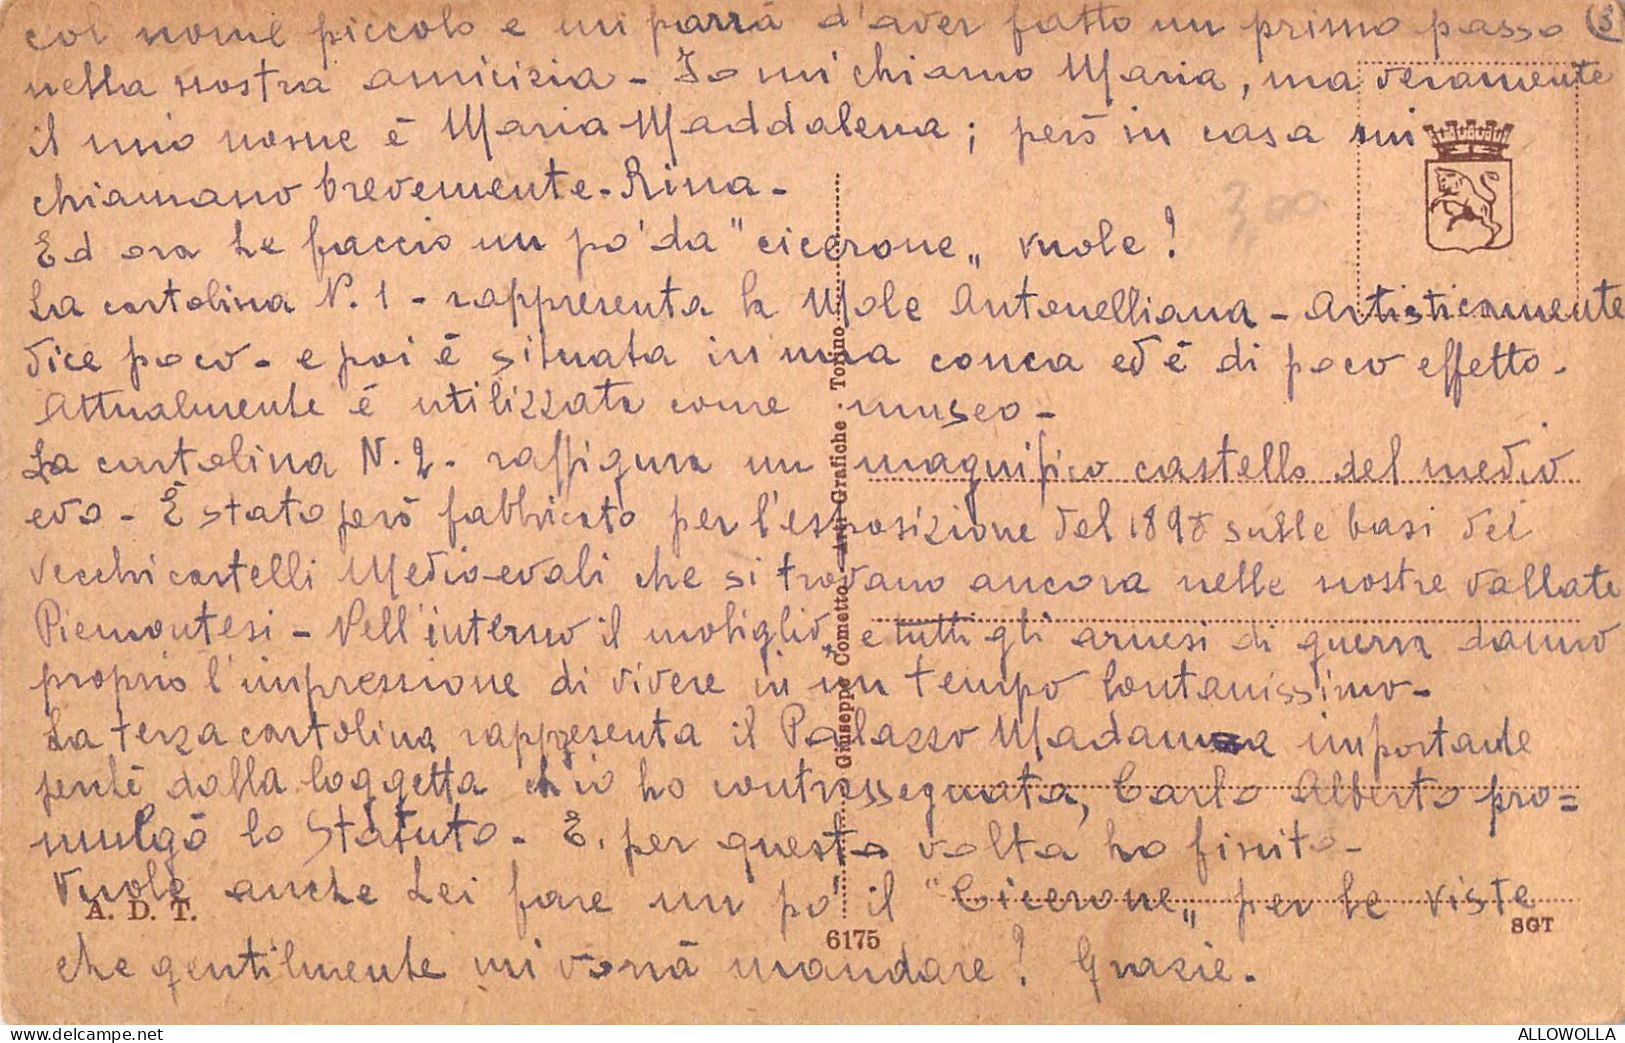 col nome piccolo e mi parrà d'aver fatto un primo passo (3)
nella nostra amicizia - Io mi chiamo Maria, ma veramente
il mio nome è Maria Maddalena; però in casa mi
chiamano brevemente - Rina -
Ed ora Le faccio un po' da "cicerone„ vuole?
La cartolina N. 1 - rappresenta la Mole Antonelliana - Artisticamente
dice poco - e poi è situata in una conca ed è di poco effetto -
Attualmente è utilizzata come museo -
La cartolina N. 2 - raffigura un magnifico castello del medio
evo - È stato però fabbricato per l'esposizione del 1898 sulle basi dei
vecchi castelli Medio-evali che si trovano ancora nelle nostre vallate
Piemontesi - Nell'interno il mobiglio, e tutti gli arnesi di guerra danno
proprio l'impressione di vivere in un tempo lontanissimo -
La terza cartolina rappresenta il Palazzo Madama importante
perchè dalla loggetta ch'io ho contrassegnata, Carlo Alberto pro=
mulgò lo Statuto - E. per questa volta ho finito -
Vuole anche Lei fare un po' il "Cicerone„ per le viste
che gentilmente mi vorrà mandare? Grazie -
3,00
Giuseppe Cometto - Arti Grafiche - Torino
A. D. T.
6175
SGT
delcampe.net
ALLOWOLLA